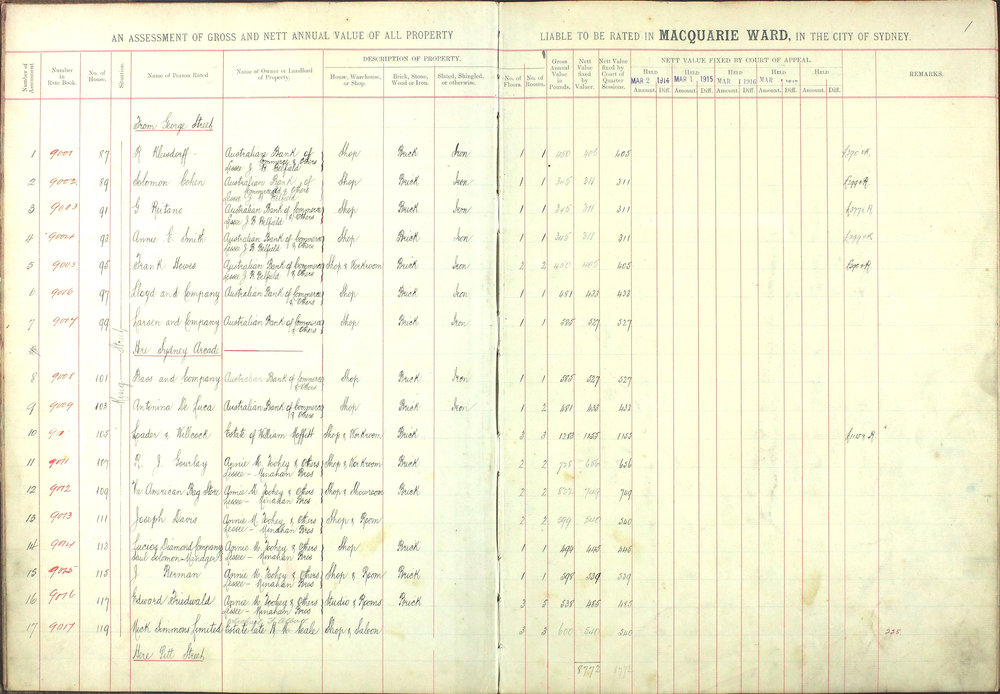 1
AN ASSESSMENT OF GROSS AND NETT ANNUAL VALUE OF ALL PROPERTY LIABLE TO BE RATED IN MACQUARIE WARD, IN THE CITY OF SYDNEY.
DESCRIPTION OF PROPERTY. NETT VALUE FIXED BY COURT OF APPEAL
Number of Assessment Number in Rate Book. No. of House. Situation. Name of Person Rated Name of Owner or Landlord of Property. House, Warehouse, or Shop. Brick, Stone, Wood or Iron. Slated, Shingled, or otherwise. No. of Floors. No. of Rooms. Gross Annual Value in Pounds. Nett Value fixed by Valuer. Nett Value fixed by Court of Quarter Sessions. REMARKS.
HELD HELD HELD HELD HELD
MAR 2 1914 MAR 1 1915 MAR 1 1916 MAR 1
Amount. Diff. Amount. Diff. Amount. Diff. Amount. Diff. Amount. Diff.
From George Street
King Street
1 9001 87 R Australian Bank of Commerce & Others Shop Brick Iron 1 1 450 405 405
Lessee J. H.
2 9002 89 Solomon Cohen Australian Bank of Commerce & Others Shop Brick Iron 1 1 345 311 311
Lessee J. H.
3 9003 91 G Australian Bank of Commerce & Others Shop Brick Iron 1 1 345 311 311
Lessee J H
4 9004 93 Annie E. Smith Australian Bank of Commerce & Others Shop Iron 1 1 345 311 311
Lessee J. H.
5 9005 95 Frank Hewes Australian Bank of Commerce & Others Shop & Workroom Brick Iron 2 2 450 405 405
Lessee J. H.
6 9006 97 Lloyd and Company Australian Bank of Commerce & Others Shop Brick Iron 1 1 481 433 433
7 9007 99 Larsen and Company Australian Bank of Commerce & Others Shop Brick Iron 1 1 585 527 527
Here Sydney Arcade
8 9008 101 Bass and Company Australian Bank of Commerce & Others Shop Brick Iron 1 1 585 527 527
9 9009 103 Antonina De Luca Australian Bank of Commerce & Others Shop Brick Iron 1 2 481 433 433
10 105 Leader & Willcock Estate of William Moffitt Shop & Workroom Brick 3 3 1283 1155 1155
11 9011 107 R. J. Gourlay Annie M. Toohey & Others Shop & Workroom Brick 2 2 728 656 656
Lessee - Minahan Bros
12 9012 109 The American Bag Store Annie M. Toohey & Others Shop & Showroom Brick 2 2 832 749 749
Lessee - Minahan Bros
13 9013 111 Joseph Davis Annie M. Toohey & Others Shop & Room 2 2 599 540 540
Lessee - Minahan Bros
14 9014 113 Diamond Company Annie M. Toohey & Others Shop Brick 1 1 494 445 445
Saul Solomon - Manager Lessee - Minahan Bros
15 115 J Berman Annie M. Toohey & Others Shop & Room Brick 1 1 598 539 539
Lessee - Minahan Bros
16 9016 117 Edward Friedwald Annie M. Toohey & Others Studio & Rooms Brick 3 5 538 485 485
Lessee - Minahan Bros
17 9017 119 Mick Simmons Limited Estate late H. W. Shop & Saloon 3 3 600 540 540 225
Here Pitt Street
8772 8772